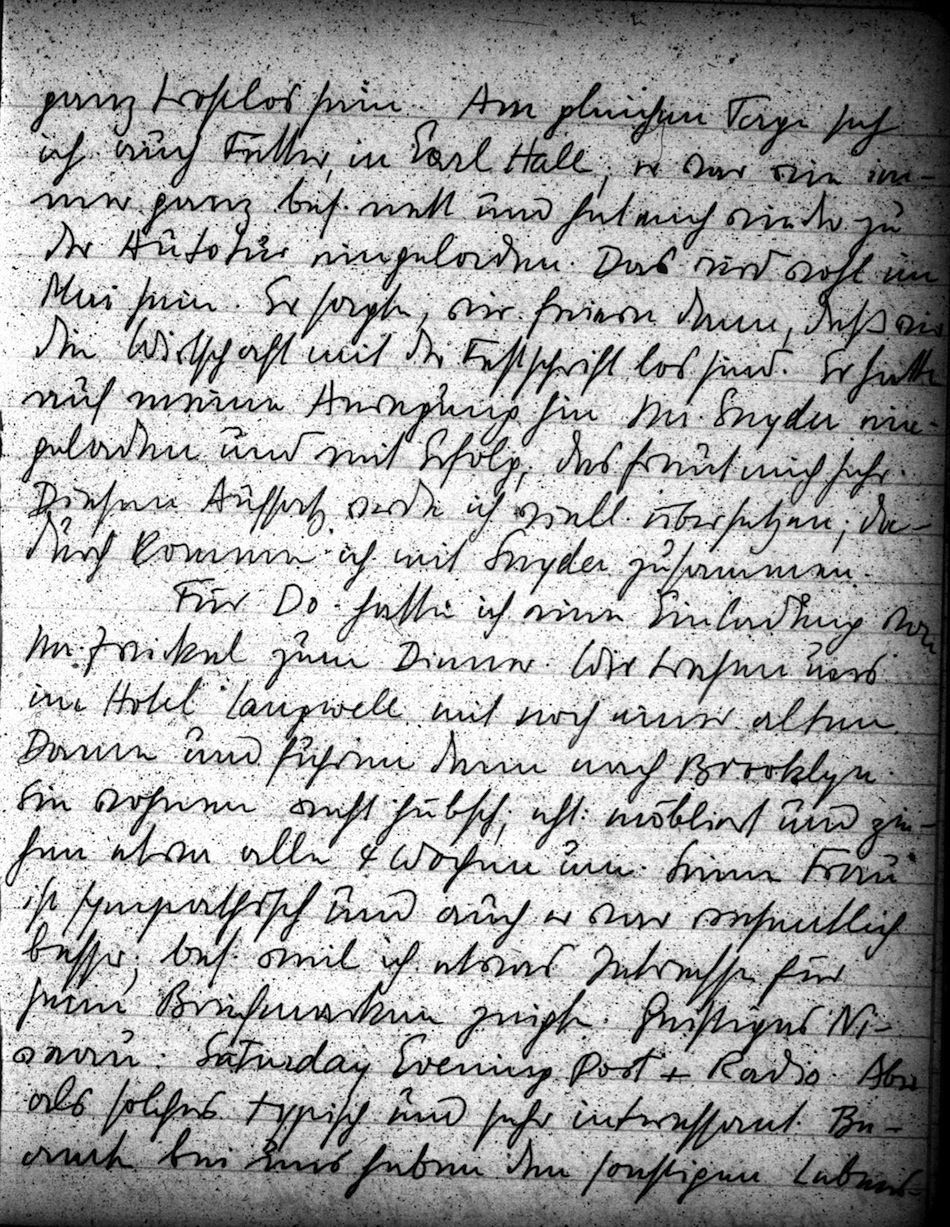 ganz trostlos sein. Am gleichen Tage sah
ich auch Fetter, in Earl Hall, er war wie im-
mer ganz bes. nett und hat mich wieder zu
der Autotur eingeladen. Das wird wohl im
Mai sein. Er sagte, wir feiern dann, daß wir
die Wirtschaft mit der Festschrift los sind. Er hatte
auf meine Anregung hin Mr. Snyder ein-
geladen und mit Erfolg, das freut mich sehr.
Diesen Aufsatz werde ich viell. übersetzen; da-
durch komme ich mit Snyder zusammen.
Für Do. hatte ich eine Einladung von
Mr. zum Dinner. Wir trafen uns
im Hotel Langwell mit noch einer alten
Dame und fuhren dann nach Brooklyn.
Sie wohnen recht hübsch, möbliert und zie-
hen etwa alle 4 Wochen um. Seine Frau
ist sympathisch und auch er war wesentlich
besser, bes. weil ich etwas Interesse für
seine Briefmarken zeigte. Geistiges Ni-
veau: Saturday Evening Post + Radio. Aber
als solches typisch und sehr interessant. Be-
amte bei uns haben den sonstigen Lebens-